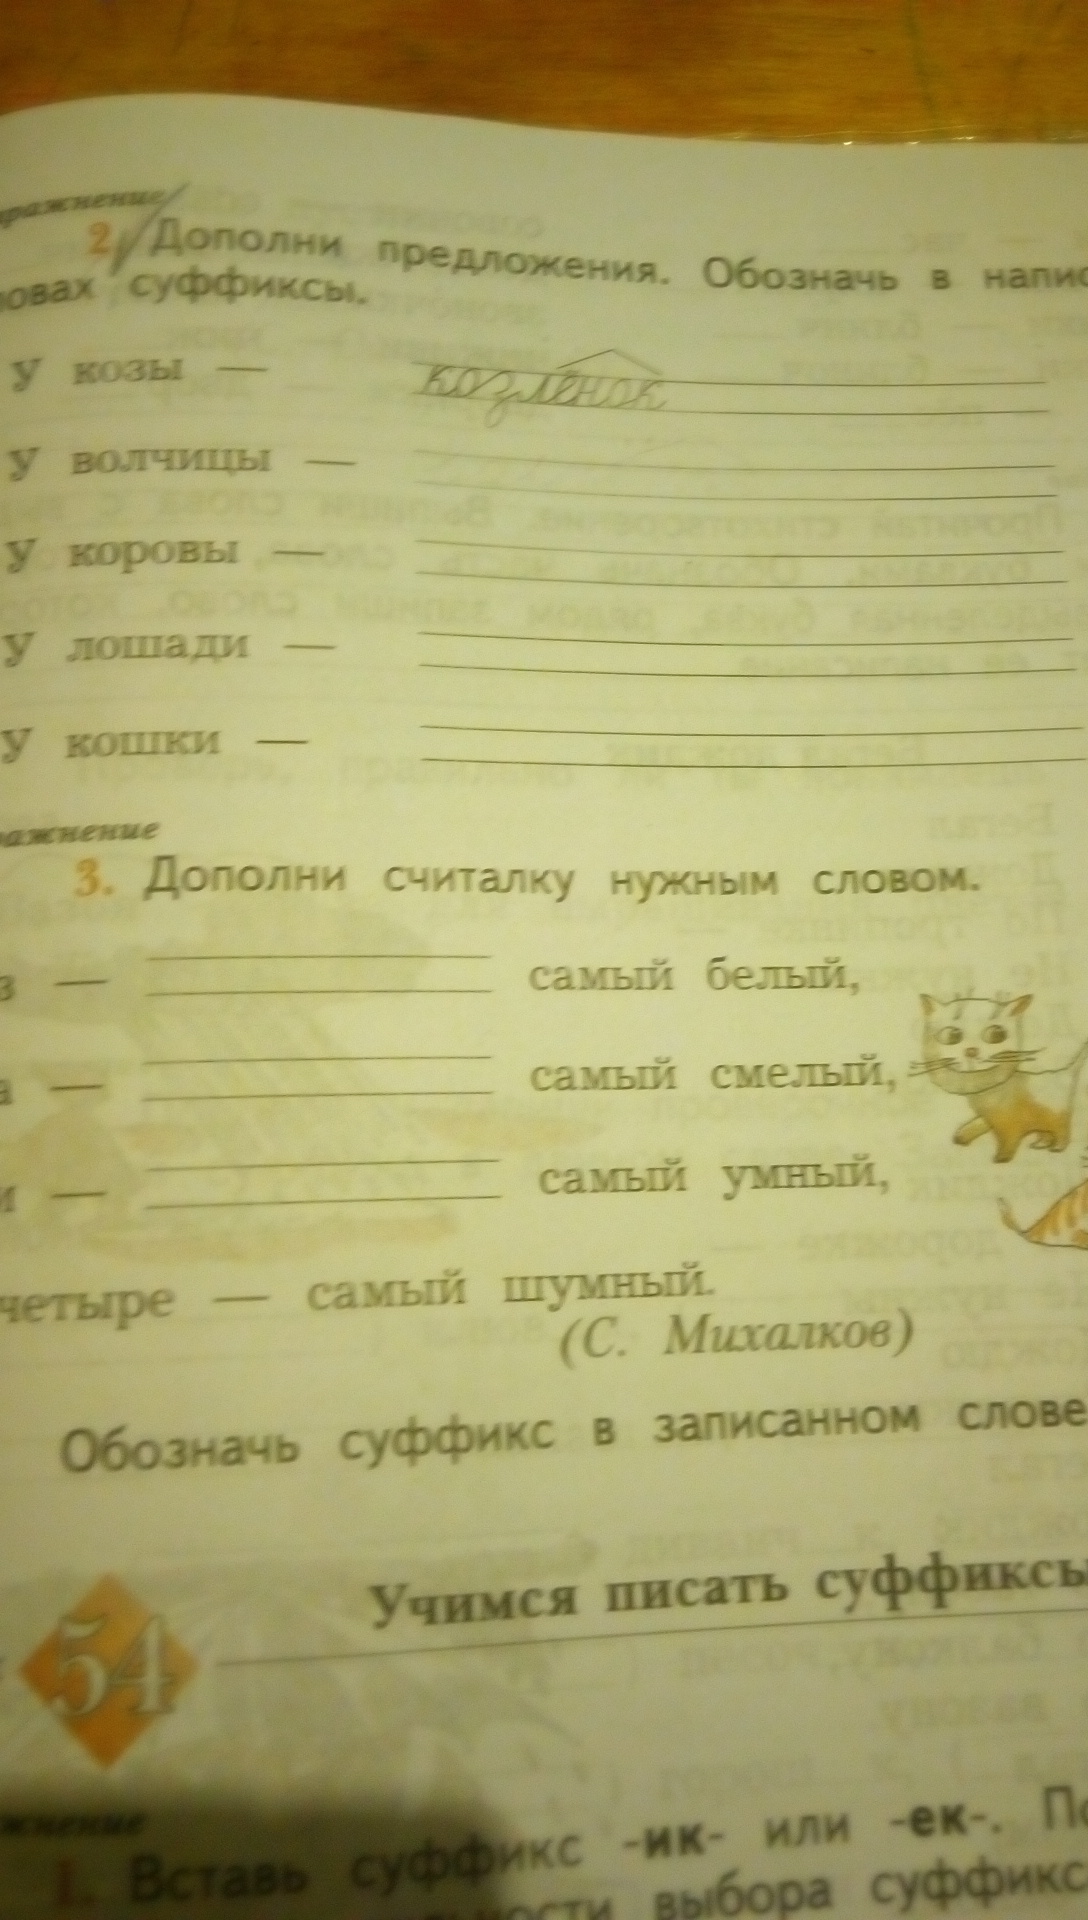 2. Дополни предложения. Обозначь в
суффиксы.
У козы — козлёнок
У волчицы —
У коровы —
У лошади —
У кошки —
3. Дополни считалку нужным словом.
— самый белый,
— самый смелый,
— самый умный,
четыре — самый шумный.
(С. Михалков)
Обозначь суффикс в записанном слове
54
Учимся писать суффиксы
1. Вставь суффикс -ик- или -ек-.
выбора